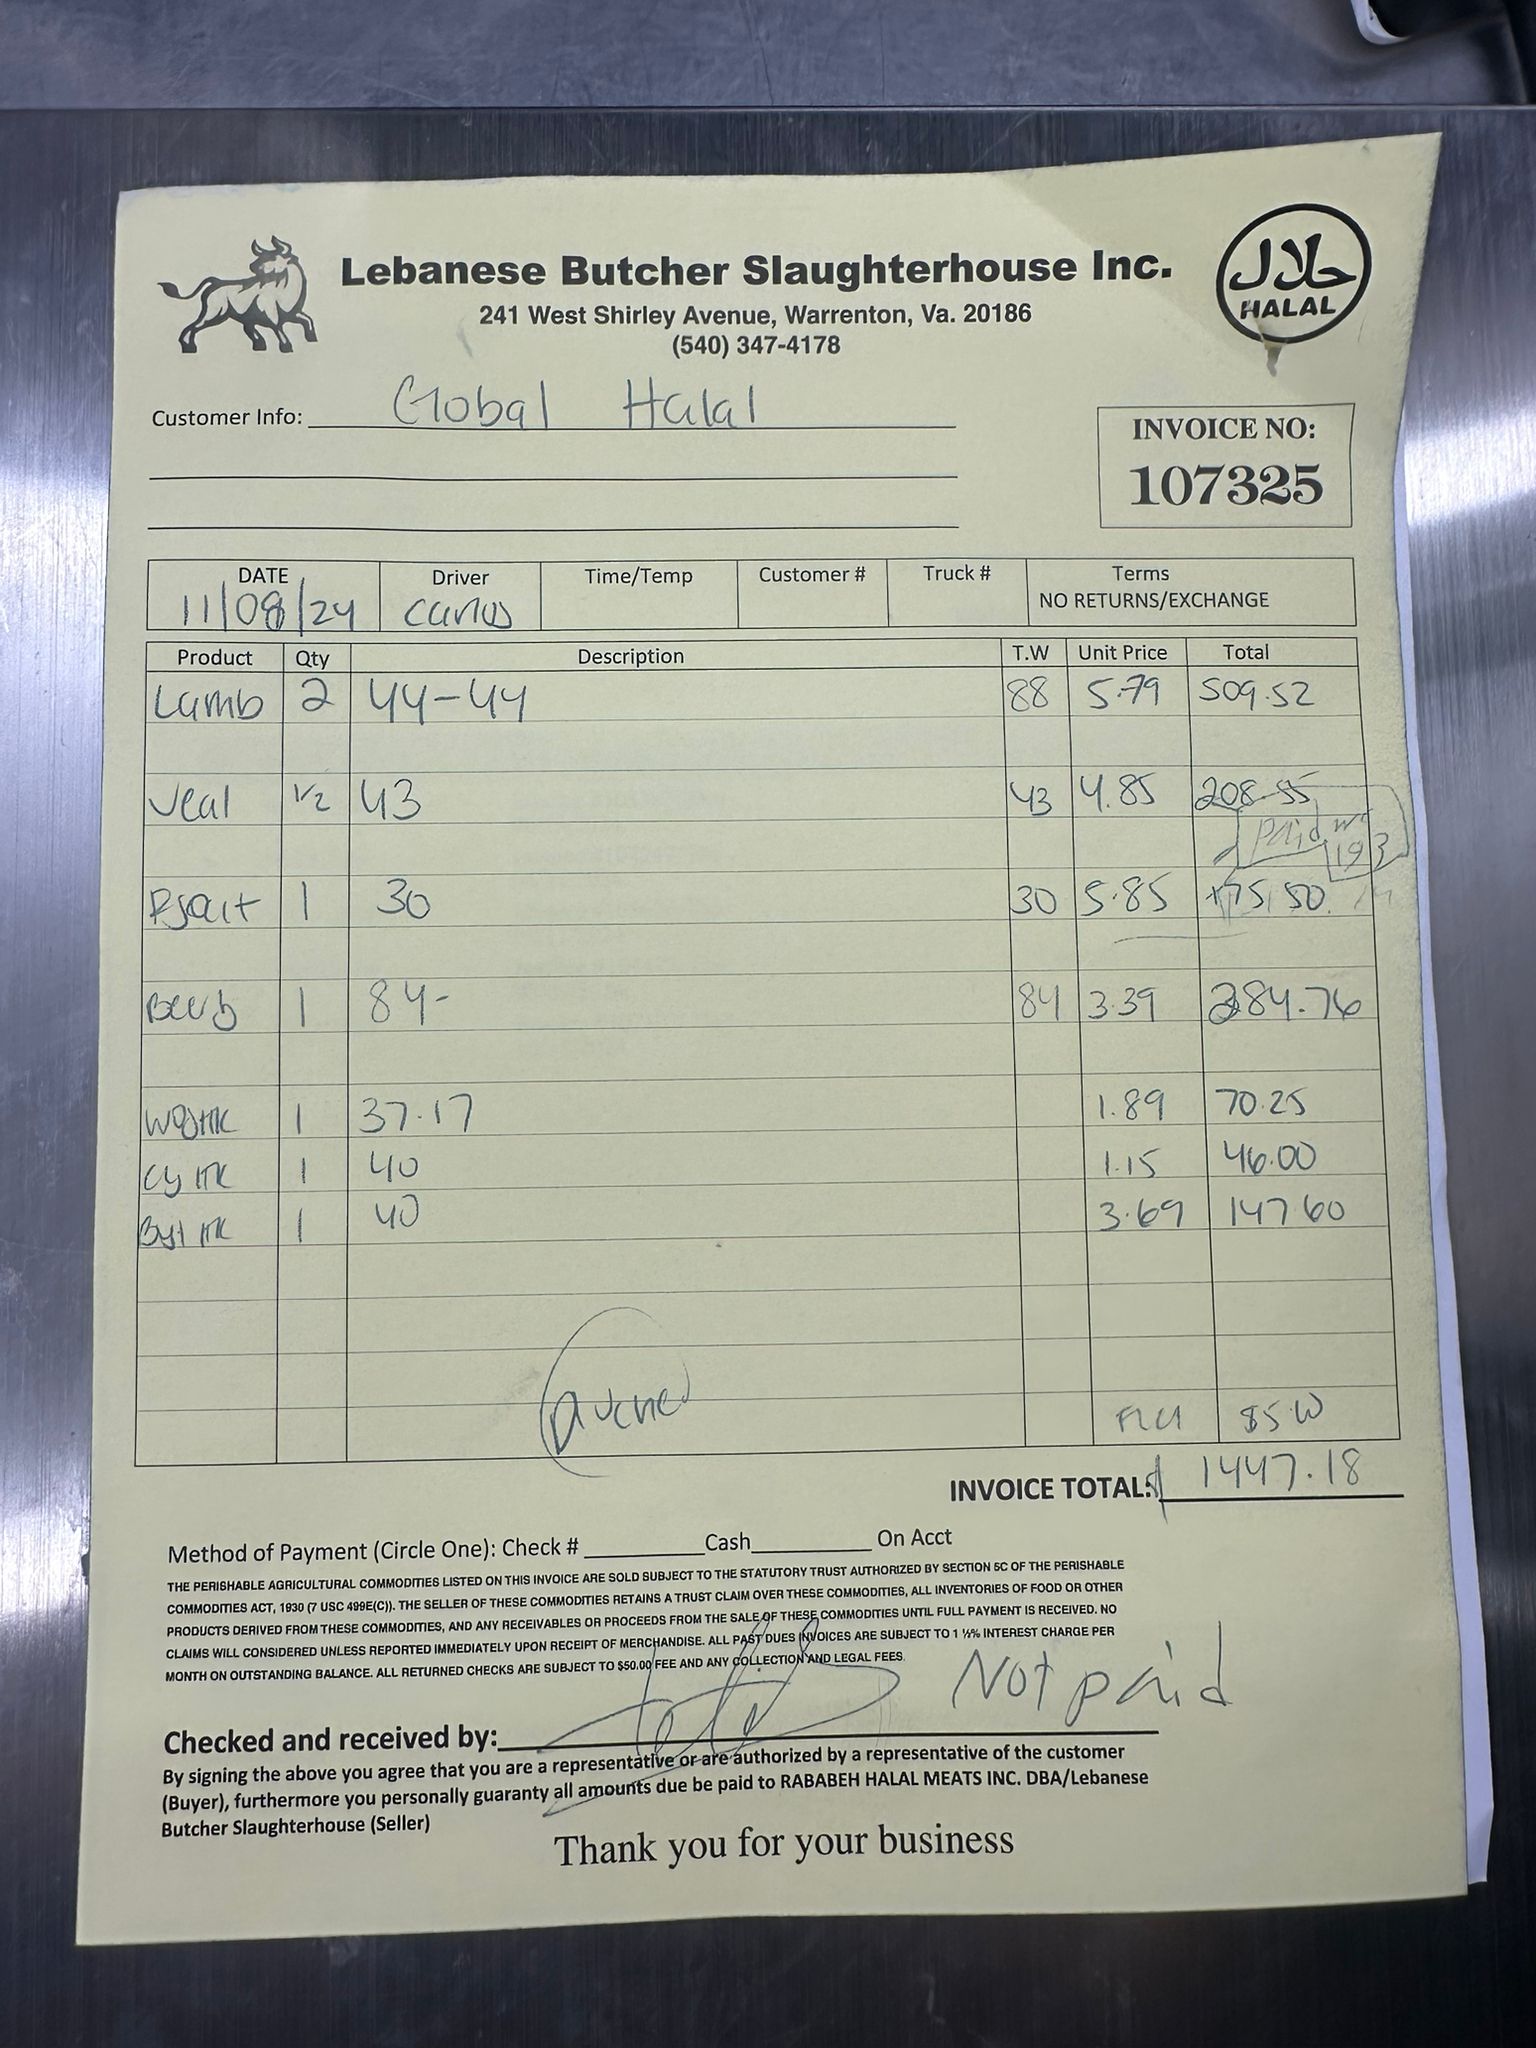 Lebanese Butcher Slaughterhouse Inc.
241 West Shirley Avenue, Warrenton, Va. 20186
(540) 347-4178
حلال
HALAL
Customer Info: Global Halal
INVOICE NO:
107325
DATE Driver Time/Temp Customer # Truck # Terms
11/08/24 Carlos NO RETURNS/EXCHANGE
Product Qty Description T.W Unit Price Total
Lamb 2 44-44 88 5.79 509.52
Veal 1/2 43 43 4.85 208.55
paid
193
1 30 30 5.85 175.50
1 84- 84 3.39 284.76
1 37.17 1.89 70.25
1 40 1.15 46.00
1 40 3.69 147.60
INVOICE TOTAL: $ 1447.18
Method of Payment (Circle One): Check # Cash On Acct
THE PERISHABLE AGRICULTURAL COMMODITIES LISTED ON THIS INVOICE ARE SOLD SUBJECT TO THE STATUTORY TRUST AUTHORIZED BY SECTION 5C OF THE PERISHABLE
COMMODITIES ACT, 1930 (7 USC 499E(C)). THE SELLER OF THESE COMMODITIES RETAINS A TRUST CLAIM OVER THESE COMMODITIES, ALL INVENTORIES OF FOOD OR OTHER
PRODUCTS DERIVED FROM THESE COMMODITIES, AND ANY RECEIVABLES OR PROCEEDS FROM THE SALE OF THESE COMMODITIES UNTIL FULL PAYMENT IS RECEIVED. NO
CLAIMS WILL CONSIDERED UNLESS REPORTED IMMEDIATELY UPON RECEIPT OF MERCHANDISE. ALL PAST DUES INVOICES ARE SUBJECT TO 1 ½% INTEREST CHARGE PER
MONTH ON OUTSTANDING BALANCE. ALL RETURNED CHECKS ARE SUBJECT TO $50.00 FEE AND ANY COLLECTION AND LEGAL FEES.
Not paid
Checked and received by:
By signing the above you agree that you are a representative or are authorized by a representative of the customer
(Buyer), furthermore you personally guaranty all amounts due be paid to RABABEH HALAL MEATS INC. DBA/Lebanese
Butcher Slaughterhouse (Seller)
Thank you for your business